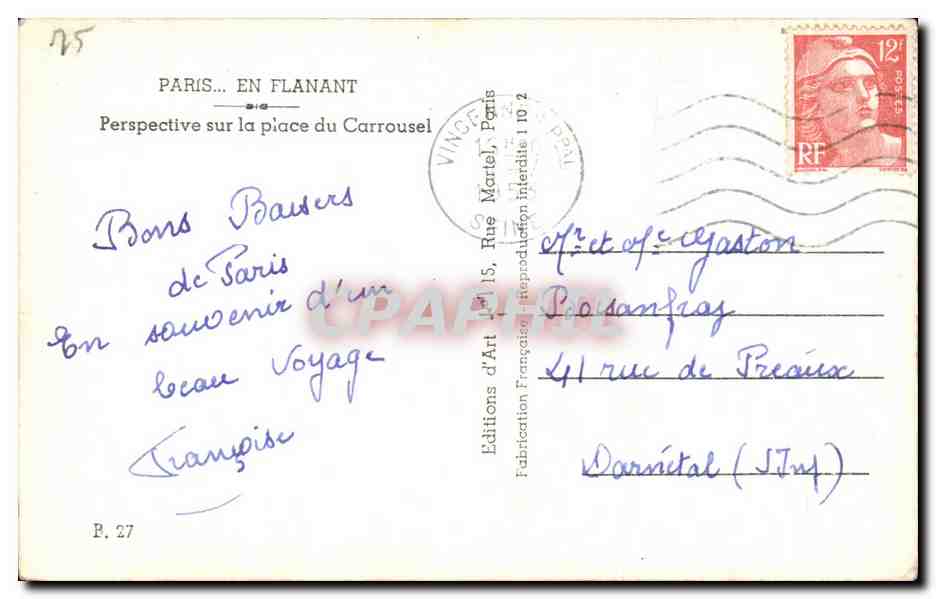 75
PARIS... EN FLANANT
Perspective sur la place du Carrousel
Bons Baisers
de Paris
En souvenir d'un
beau Voyage
Françoise
B. 27
Editions d'Art 15, Rue Martel, Paris
Fabrication Française Reproduction interdite 1 10 2
12F
POSTES
RF
PPAL
SEINE
CPAPHIL
Mr et Me Gaston
41 rue de Préaux
Darnétal (S Inf)